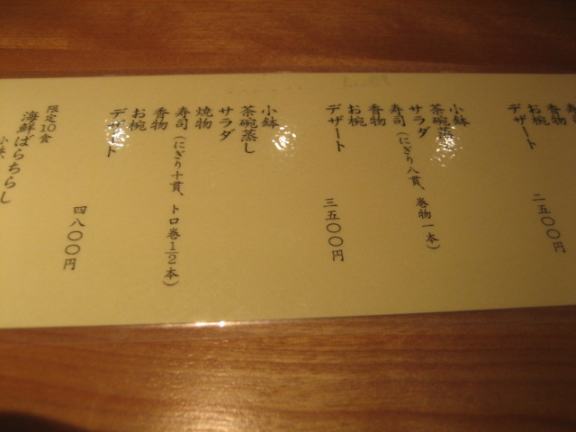 香物
お椀
デザート
二五〇〇円
小鉢
茶碗蒸し
サラダ
寿司（にぎり八貫、巻物一本）
香物
お椀
デザート
三五〇〇円
小鉢
茶碗蒸し
サラダ
焼物
寿司（にぎり十貫、トロ巻1/2本）
香物
お椀
デザート
四八〇〇円
限定10食
海鮮ばらちらし